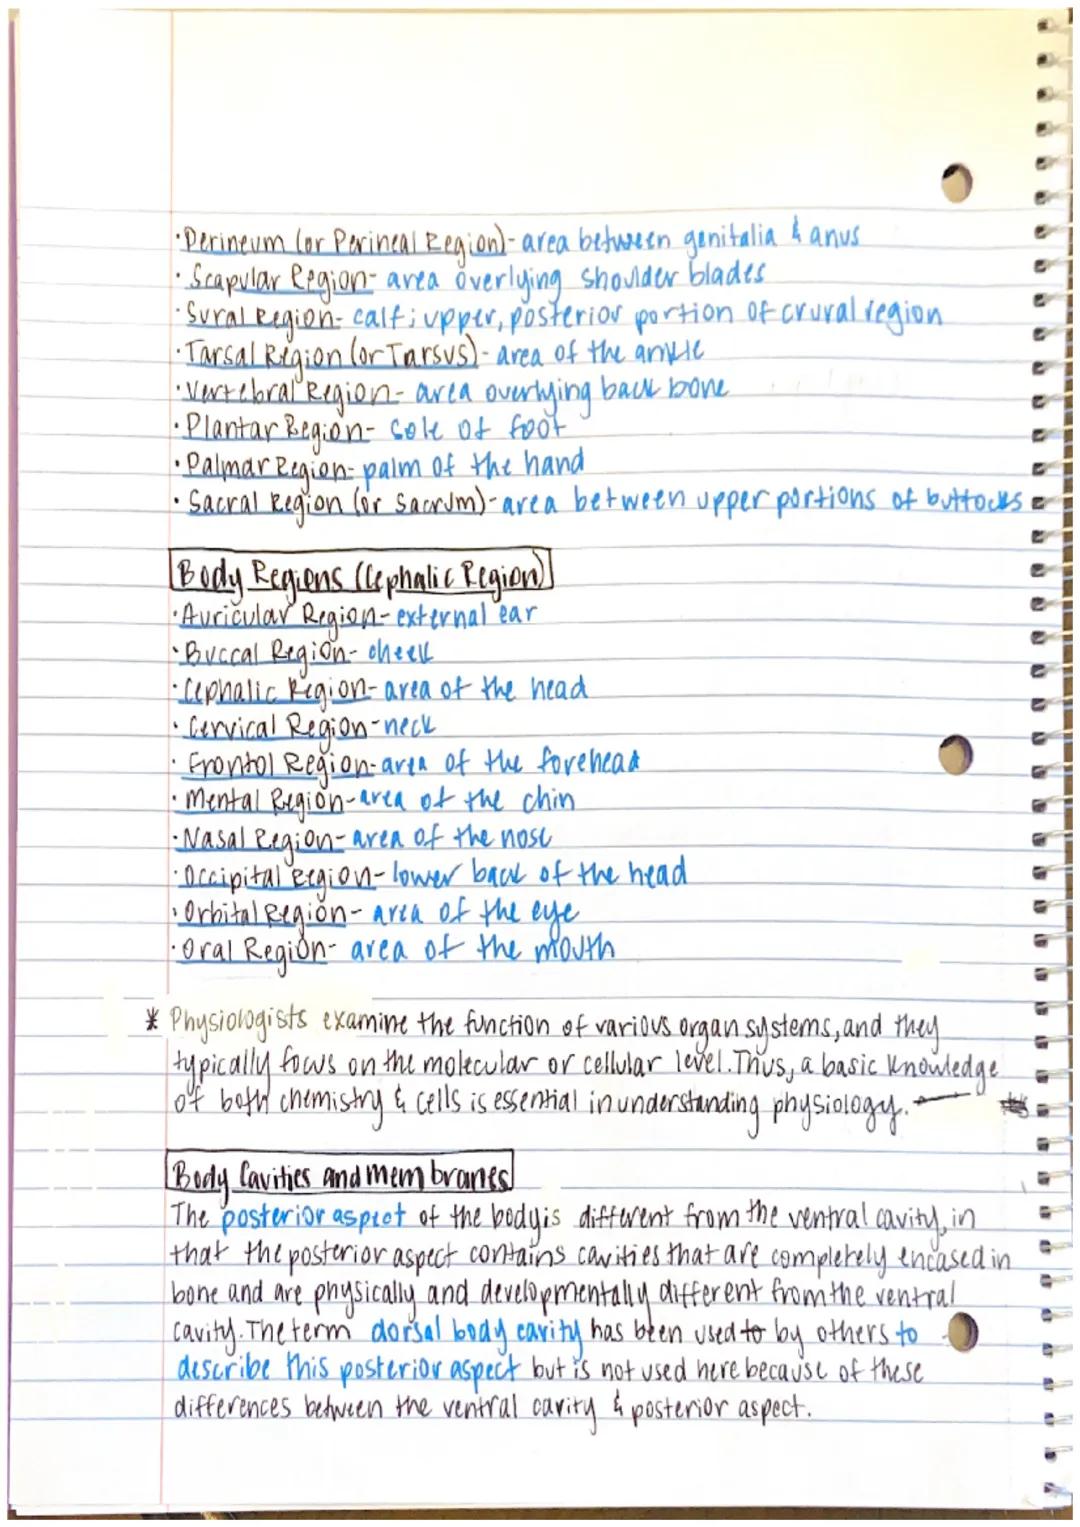 ·Perineum (or Perineal Region)- area between genitalia & anus
· Scapular Region- area overlying shoulder blades
·Sural Region- calf; upper, posterior portion of crural region
·Tarsal Region (or Tarsus)- area of the ankle
·Vertebral Region- area overlying back bone
·Plantar Region- sole of foot
·Palmar Region- palm of the hand
· Sacral Region (or Sacrum)-area between upper portions of buttocks
Body Regions (Cephalic Region)
·Auricular Region- external ear
·Buccal Region- cheek
·Cephalic Region- area of the head
· Cervical Region-neck
· Frontal Region-area of the forehead
· Mental Region-area of the chin
·Nasal Region- area of the nose
·Occipital Region- lower back of the head
·Orbital Region- area of the eye
·Oral Region- area of the mouth
* Physiologists examine the function of various organ systems, and they
typically focus on the molecular or cellular level. Thus, a basic knowledge
of both chemistry & cells is essential in understanding physiology.
Body Cavities and Membranes
The posterior aspect of the body is different from the ventral cavity, in
that the posterior aspect contains cavities that are completely encased in
bone and are physically and developmentally different from the ventral
cavity. The term dorsal body cavity has been used to by others to
describe this posterior aspect but is not used here because of these
differences between the ventral cavity & posterior aspect.